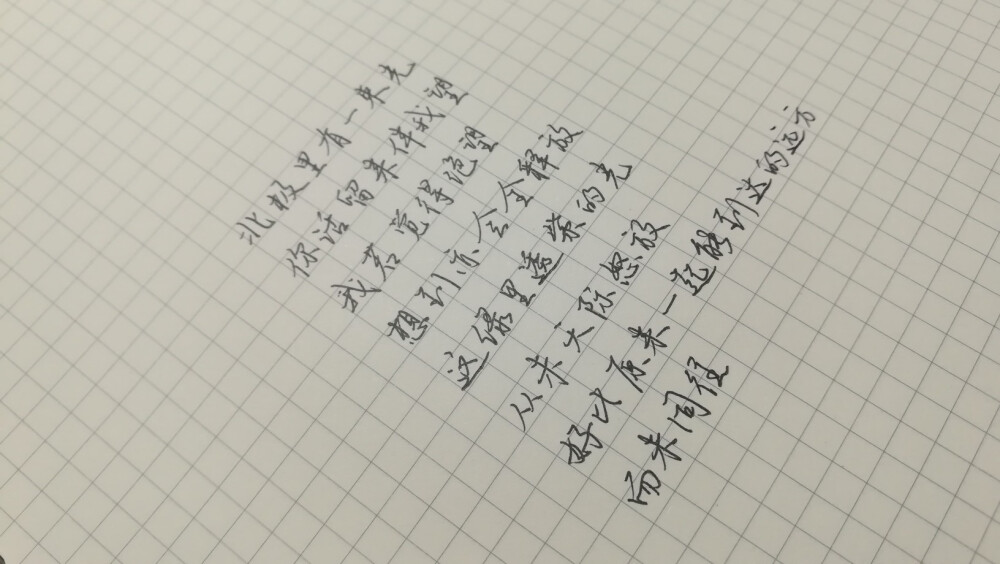 北极里有一束光
你话留来伴我望
我若觉得绝望
想到亦会全释放
这缘里透紫的光
从未天际怒放
好比原来一起能到达的远方
而未同往